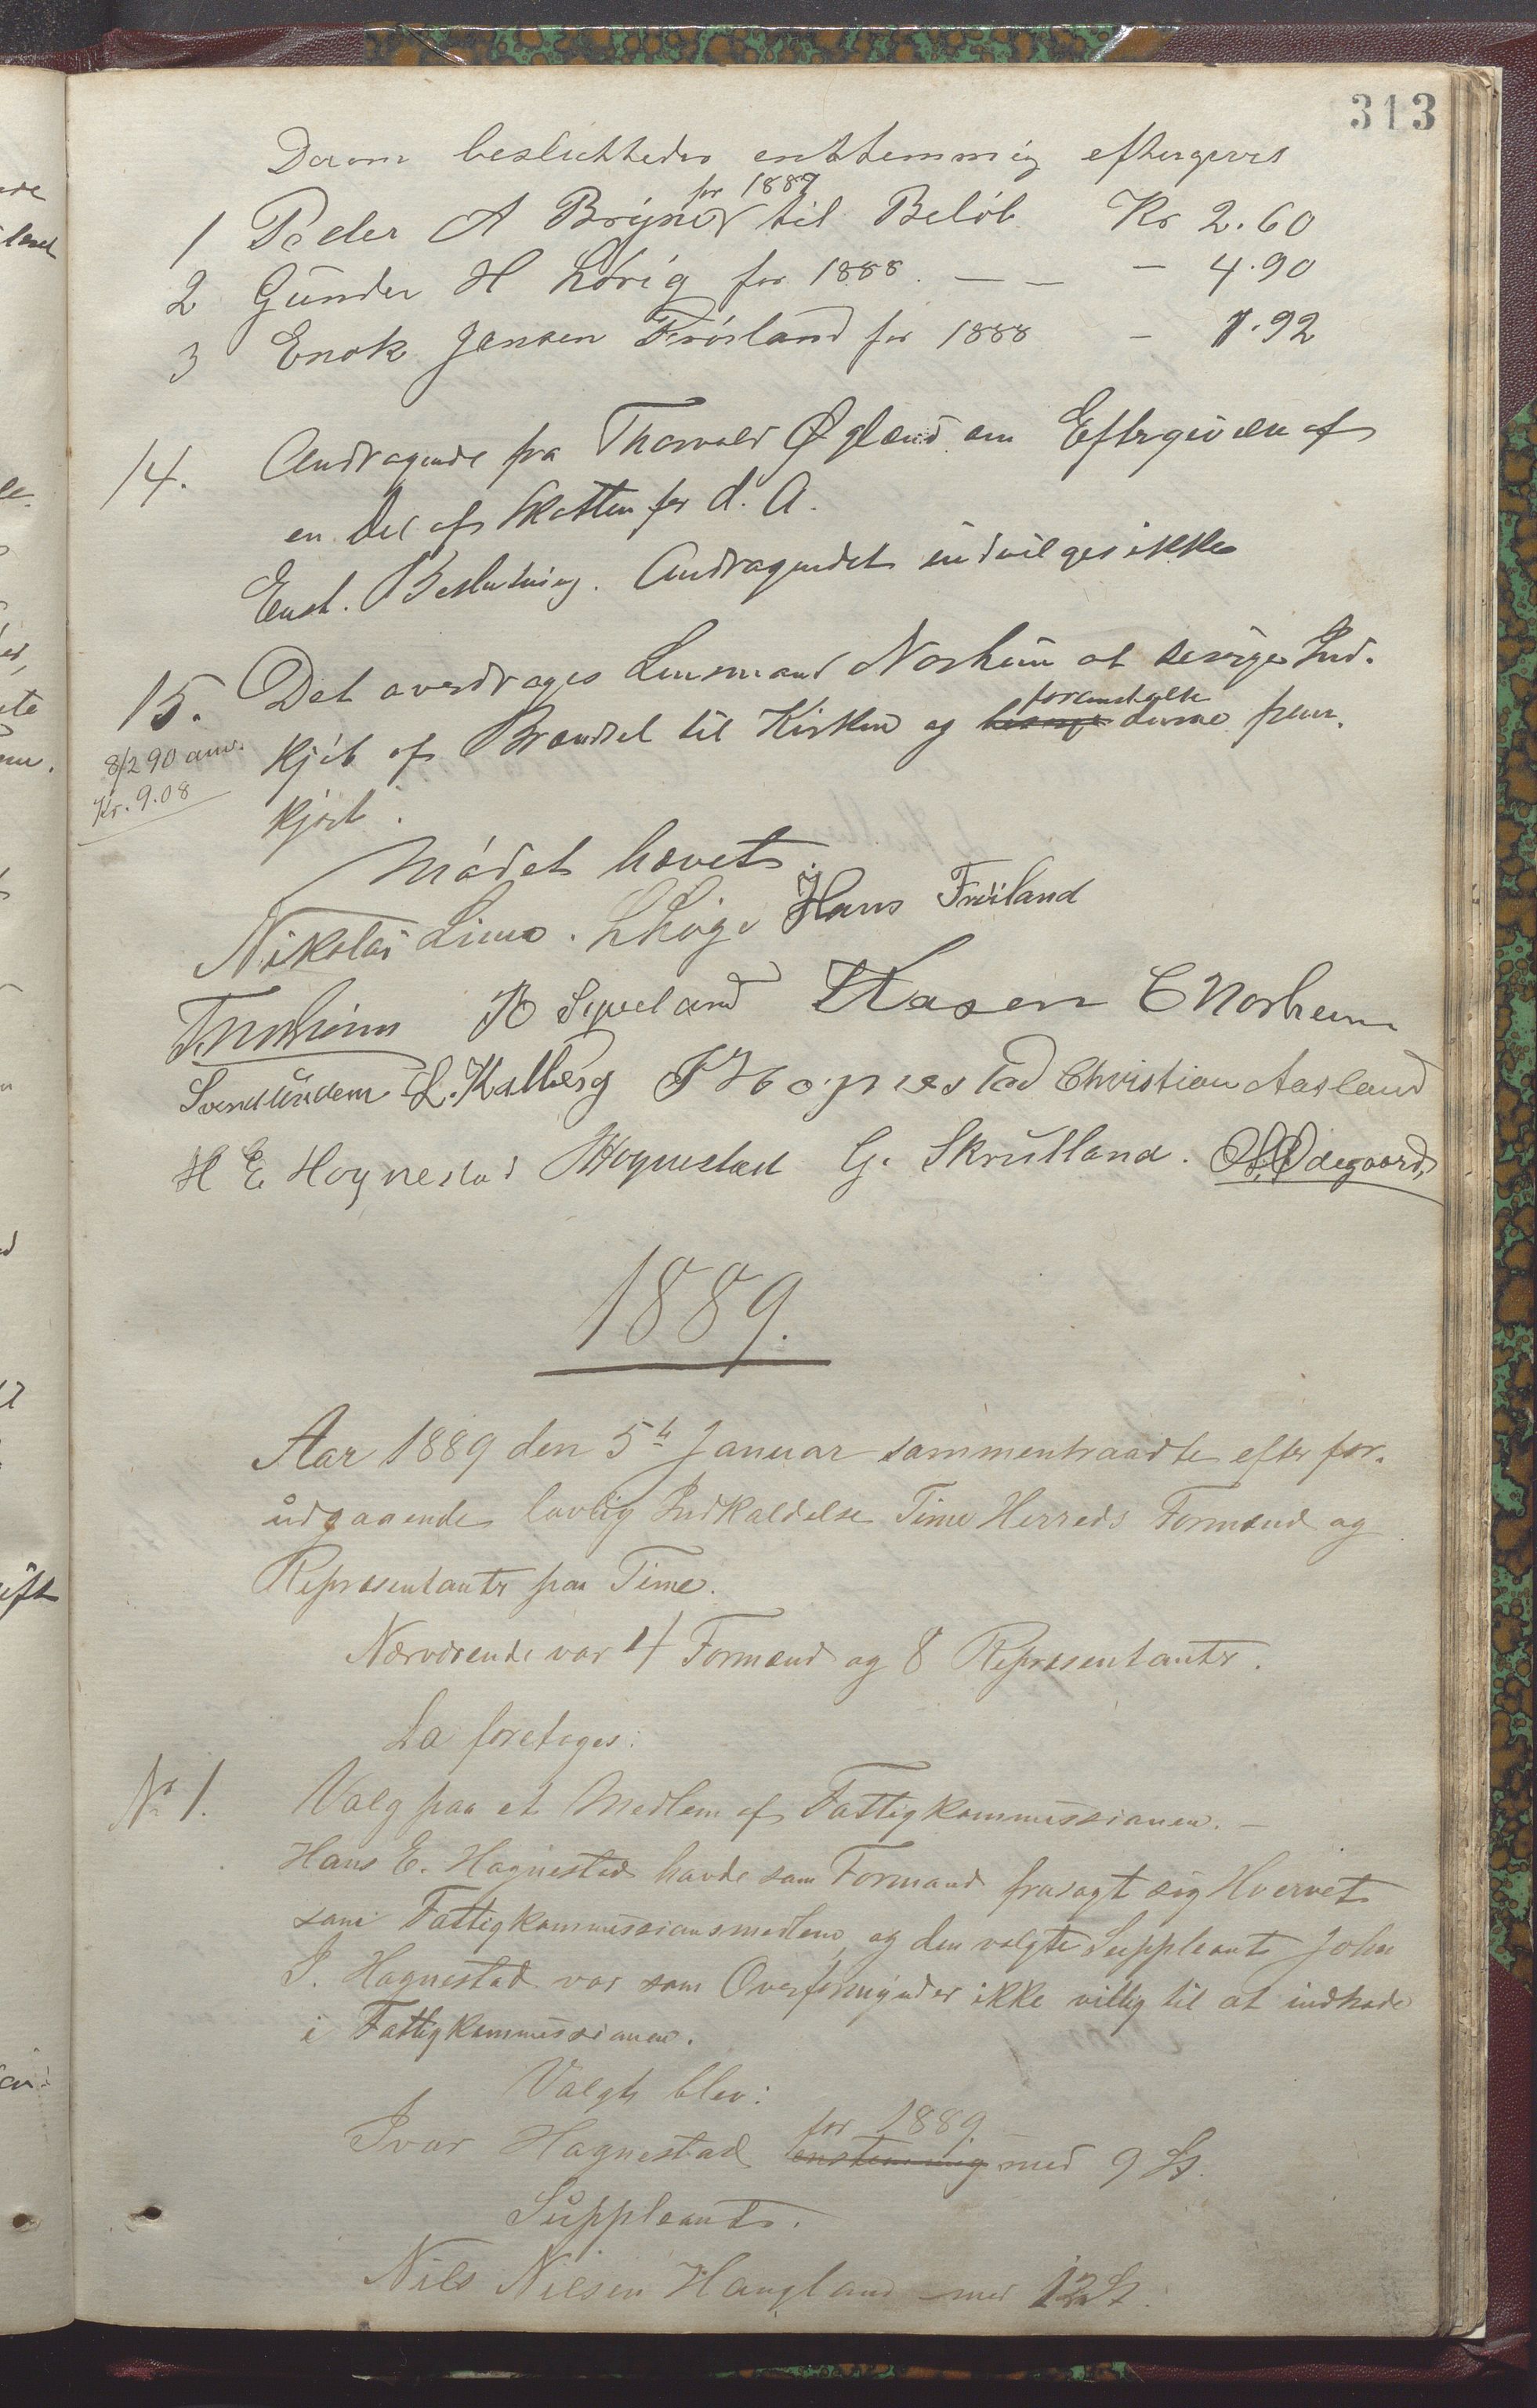 313
Derom besluttedes enstemmig eftergives
for 1887
1 Peder A Bryne til Beløb Kr 2.60
2 Gunder H Lørig for 1888 — — — 4.90
3 Enok Jensen Frøiland for 1888 — 1.92
14. Andragende fra Thorvald Øgland om Eftergivelse af
en Del af Skatten for d. A.
Enst. Beslutning. Andragendet indvilges ikke
15. Det overdrages Lensmand Norheim at besørge Ind-
foranstalte
kjøb af Brændsel til Kirken og besørge denne frem-
8/2 90 anv.
Kr. 9.08
kjørt.
Mødet hævet.
Nikolai Lima. Hans Frøiland
T. Norheim Sqveland Aasen C Norheim
Svend Undem L. Kalberg Hognestad Christian Aasland
H E Hognestad Hognestad G. Skrudland. Ødegaard
1889.
Aar 1889 den 5te Januar sammentraadte efter for-
udgaaende lovlig Indkaldelse Time Herreds Formænd og
Repræsentanter paa Time.
Nærværende var 4 Formænd og 8 Repræsentanter.
Da foretoges:
No 1. Valg paa et Medlem af Fattigkommissionen. —
Hans E. Hognestad havde som Formand frasagt sig Hvervet
som Fattigkommissionsmedlem, og den valgte Suppleant John
I. Hognestad var som Overformynder ikke villig til at indtræde
i Fattigkommissionen.
Valgt blev:
for 1889
Ivar Hognestad enstemmig med 9 St.
Suppleant.
Nils Nilsen Haugland med 12 St.